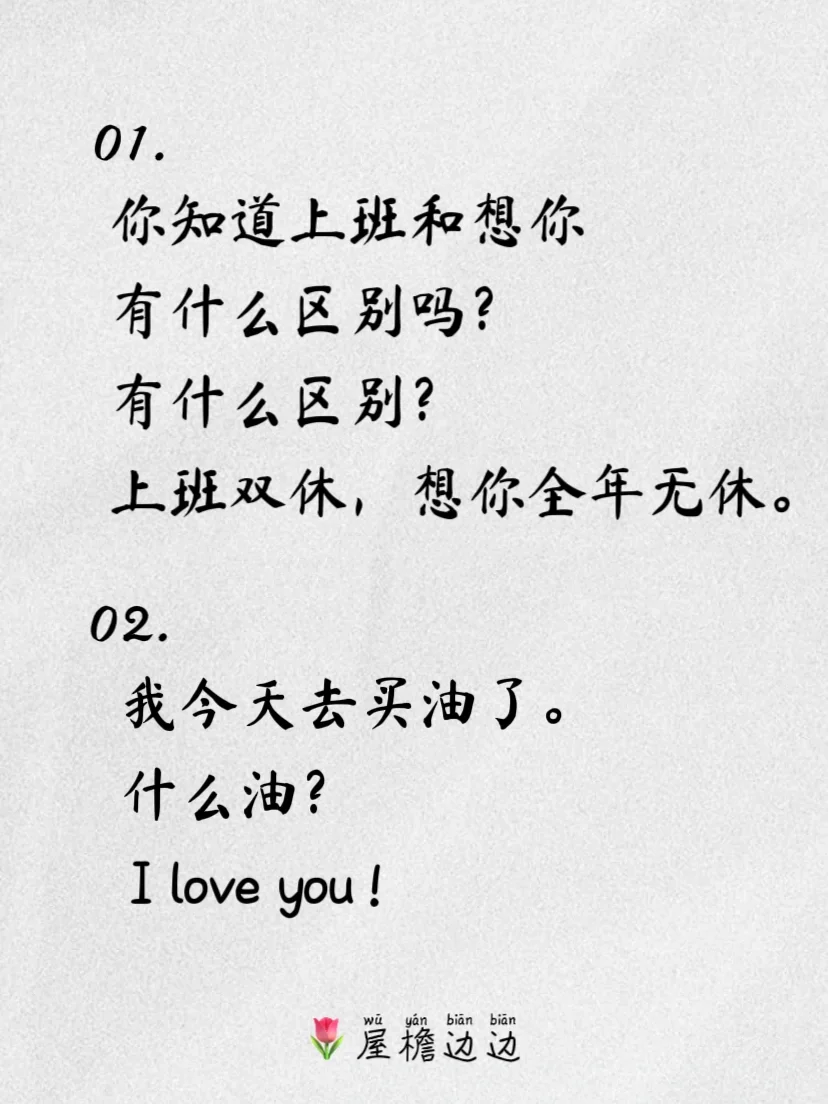 01.
你知道上班和想你
有什么区别吗？
有什么区别？
上班双休，想你全年无休。
02.
我今天去买油了。
什么油？
I love you！
wū yán biān biān
屋檐边边